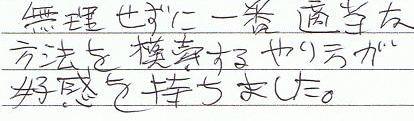 無理せずに一番適当な
方法を模索するやり方が
好感を持ちました。